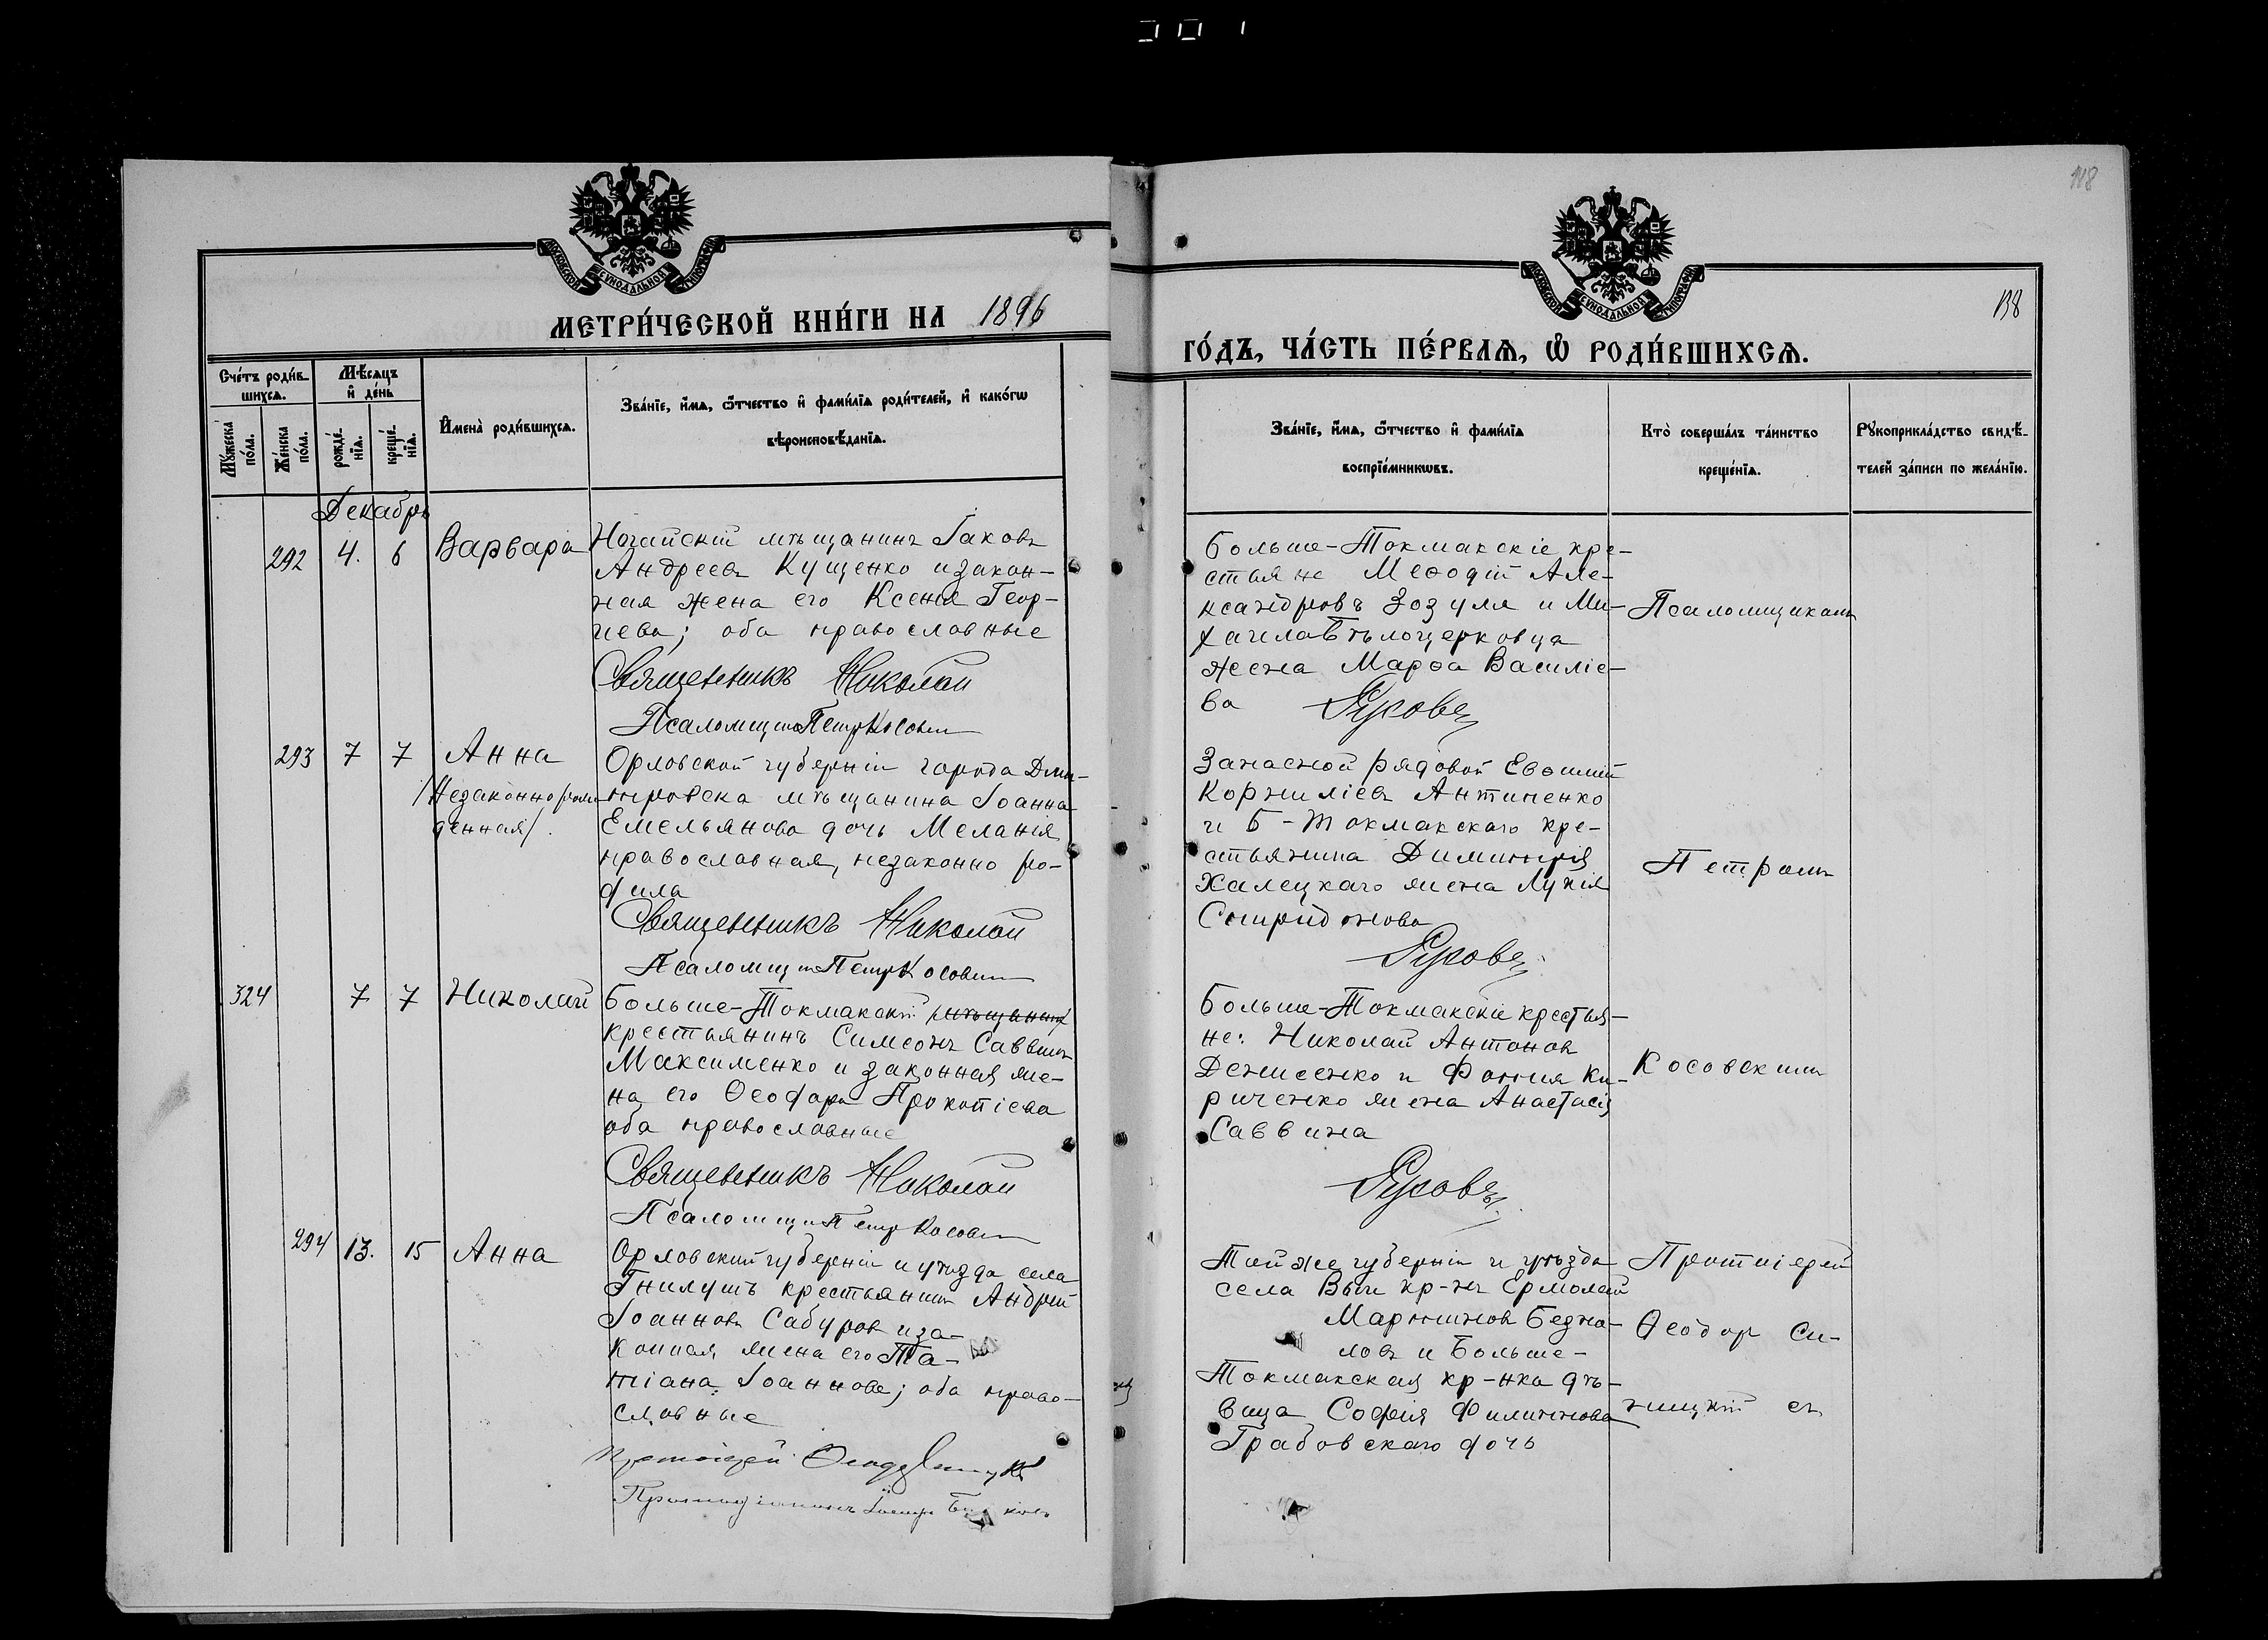 118
138
МЕТРИ́ЧЕСКОЙ КНИ́ГИ НА 1896
ГО́ДЪ, ЧА́СТЬ ПЕ́РВАЯ, Ѿ РОДИ́ВШИХСЯ.
Сче́тъ роди́в-
шихся.
Мѣ́сяцъ
и҆ де́нь
Мꙋ́жеска
по́ла.
Же́нска
по́ла.
рожде́-
нїя.
креще́-
нїя.
И҆мена̀ роди́вшихся.
Зва́нїе, и҆́мя, ѻ҆́тчество и҆ фами́лїя роди́телей, и҆ како́гѡ
вѣроисповѣ́данїя.
Зва́нїе, и҆́мя, ѻ҆́тчество и҆ фами́лїя
воспрїе́мникѡвъ.
Кто̀ соверша́лъ та́инство
креще́нїя.
Рꙋкоприкла́дство свидѣ́-
телей за́писи по жела́нїю.
Декабрь
292 4. 6 Варвара
Ногайскій мѣщанинъ Іаковъ
Андреевъ Кущенко и закон-
ная жена его Ксенія Геор-
гіева; оба православные
Священникъ Николай
Псаломщикъ Петръ Косовскій
Больше-Токмакскіе кре-
стьяне Меѳодій Але-
ксандровъ Зозуля и Ми-
хаила Бѣлоцерковца
жена Марѳа Василіе-
ва
Псаломщикомъ
293 7 7 Анна
/Незаконнорож-
денная/.
Орловской губерніи города Дми-
тровска мѣщанина Іоанна
Емельянова дочь Меланія
православная, незаконно ро-
дила
Священникъ Николай
Псаломщикъ Петръ Косовскій
Запасной рядовой Евѳимій
Корниліевъ Антипенко
и Б-Токмакскаго кре-
стьянина Димитрія
Халецкаго жена Лукія
Спиридонова
Петромъ
324 7 7 Николай
Больше-Токмакскій мѣщанинъ
крестьянинъ Симеонъ Саввинъ
Максименко и законная же-
на его Ѳеодора Прокопіева
оба православные
Священникъ Николай
Псаломщикъ Петръ Косовскій
Больше-Токмакскіе крестья-
не: Николай Антоновъ
Денисенко и Фотия Ки-
риченко жена Анастасія
Саввина
Косовскимъ
294 13. 15 Анна
Орловской губерніи и уѣзда села
Гнилушъ крестьянинъ Андрей
Іоанновъ Сабуровъ и за-
конная жена его Та-
тіана Іоаннова; оба право-
славные
Протоіерей Ѳеодоръ Синицкій
Той же губерніи и уѣзда
села кр-нъ Ермолай
Мартиновъ
и Больше-
Токмакская кр-нка дѣ-
вица Софія Филиппова
Грабовскаго дочь
Протоіерей
Ѳеодоръ Си-
ницкій съ